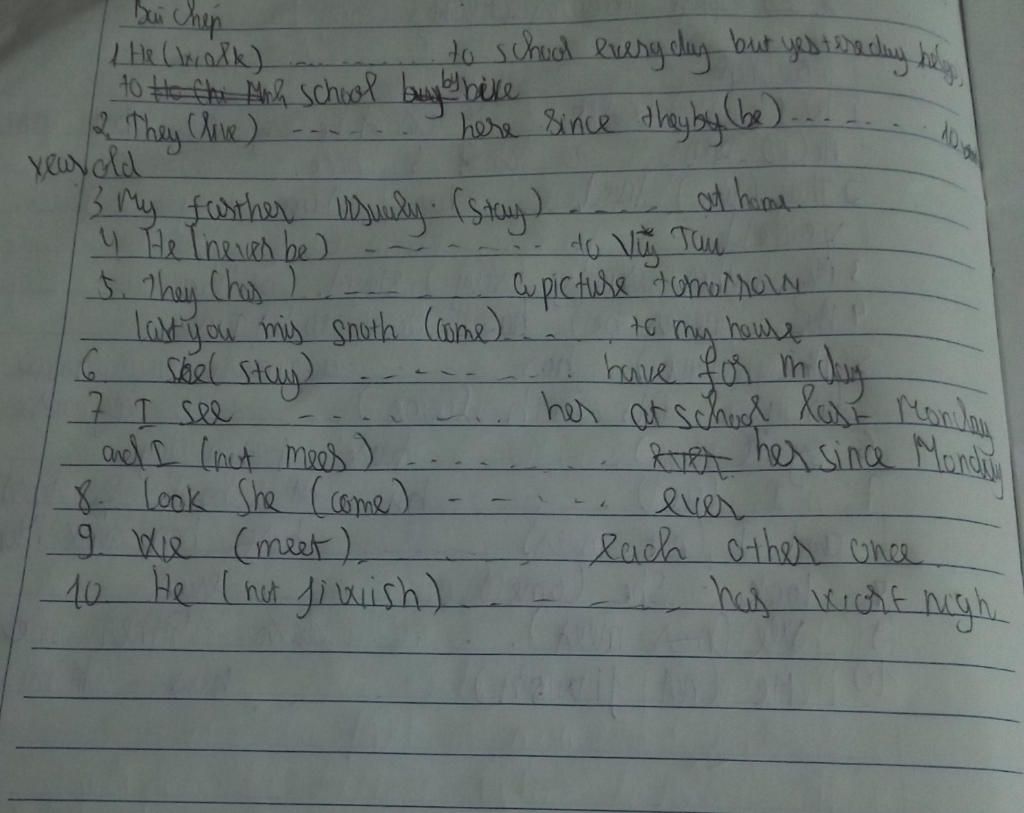 Bài chép
1 He (walk) ........... to school every day but yesterday
to school by bike
2. They (live) ------ . here since they (be) ....... 10
year old
3 My farther usualy (stay) ----- at home.
4 He (never be) -------- to Vũg Tau
5. They (has) ------ a picture tomorrow
last you mis snoth (come) -. . to my house
6 She (stay) -------- . have for m day
7 I see ---.--.. her at school last Monday
and I (not mees) .......... her since Monday
8. Look She (come) - - - . - .. ever
9 We (meet) each other once
10 He (not fixish) - - - - - has